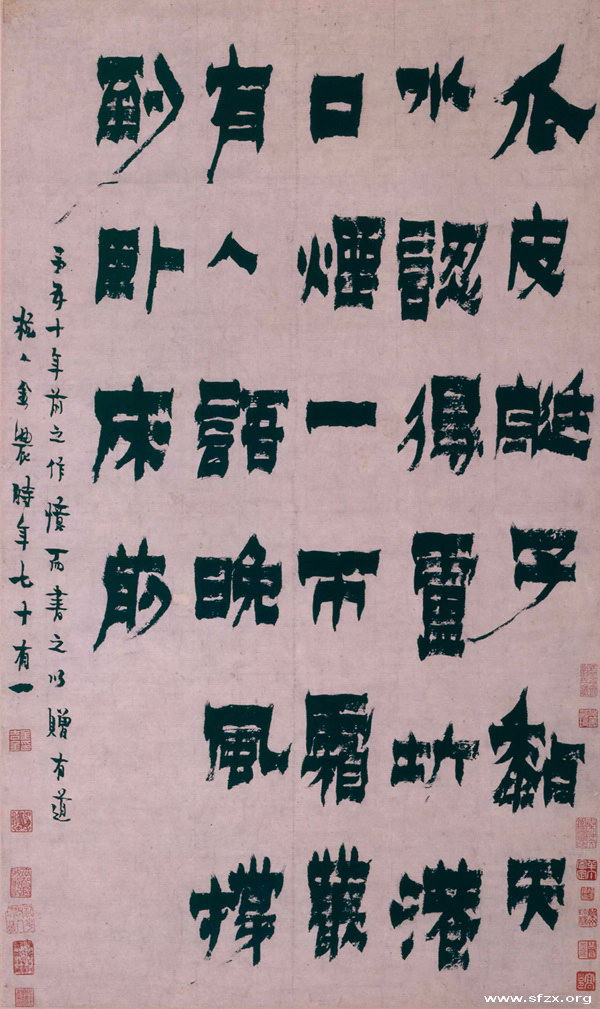 瓜皮艇子黏天
水認得盧圻港
口煙一帀霜叢
有人語晚風撐
到臥床前
予五十年前之作憶而書之以贈有道
杭人金農時年七十有一
www.sfzx.org